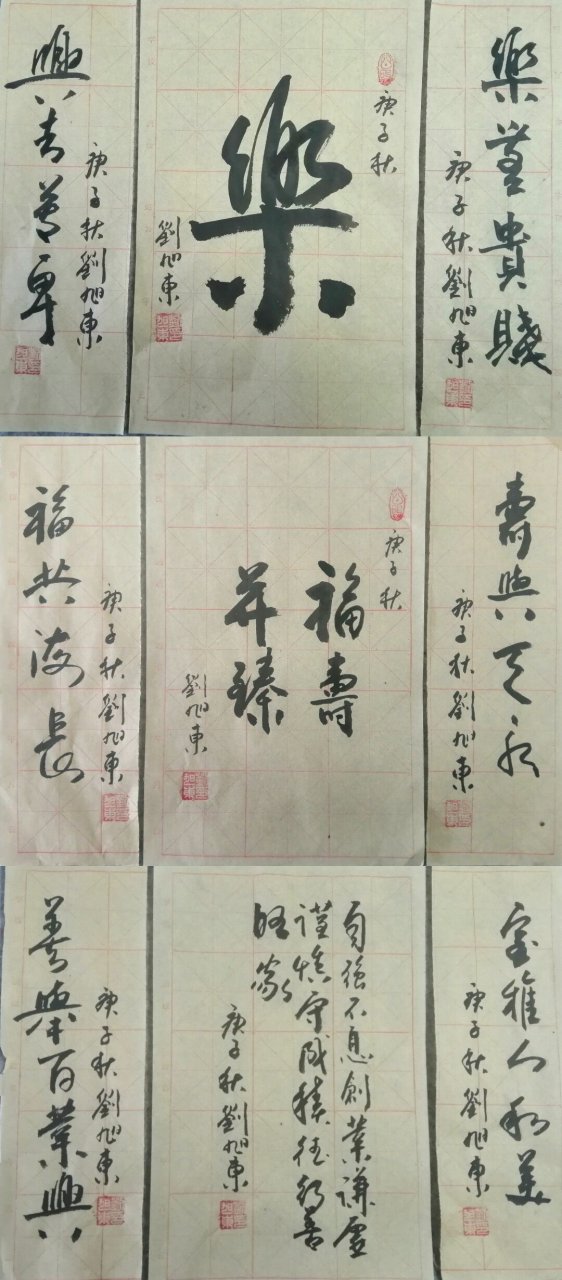 樂無貴賤
庚子秋劉旭東
庚子秋
樂
劉旭東
興尊卑
庚子秋劉旭東
壽與天永
庚子秋劉旭東
庚子秋
福壽
并臻
劉旭東
福共海長
庚子秋劉旭東
室雅人和美
庚子秋劉旭東
自強不息創業謙虛
謹慎守成積德行善
家
庚子秋劉旭東
善樂百業興
庚子秋劉旭東